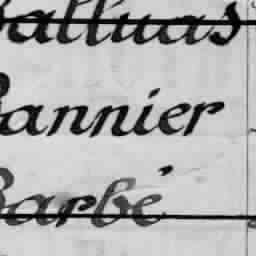 Balluas
Bannier
Barbé